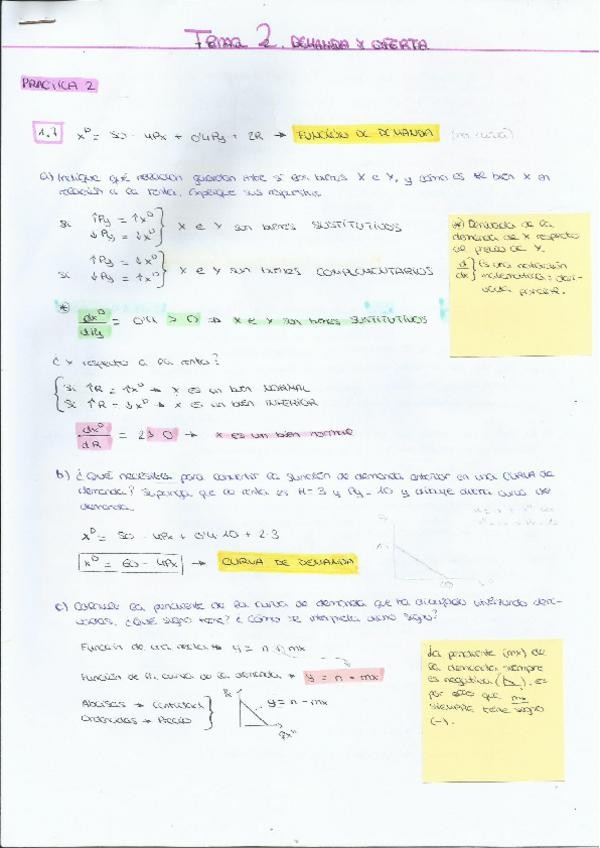 TEMA 2. DEMANDA Y OFERTA
PRÁCTICA 2
1.7 x^D = 50 - 4Px + 0'4Py + 2R → FUNCIÓN DE DEMANDA
a) Indique qué relación guardan entre sí los bienes X e Y, y cómo es el bien X en
relación a la renta. Explique sus respuestas.
Si ↑Py = ↑x^D
↓Py = ↓x^D } X e Y son bienes SUSTITUTIVOS
↑Py = ↓x^D
Si ↓Py = ↑x^D } X e Y son bienes COMPLEMENTARIOS
* dx^D/dPy = 0'4 > 0 ⇒ X e Y son bienes SUSTITUTIVOS
*) Derivada de la
demanda de X respecto
al precio de Y.
d/dx } es una notación
matemática: deri-
vada parcial.
¿Y respecto a la renta?
Si ↑R = ↑x^D → X es un bien NORMAL
Si ↑R = ↓x^D → X es un bien INFERIOR
dx^D/dR = 2 > 0 → X es un bien normal
b) ¿Qué necesitas para convertir la función de demanda anterior en una CURVA de
demanda? Suponga que la renta es R=3 y Py=10 y dibuje dicha curva de
demanda.
x^D = 50 - 4Px + 0'4·10 + 2·3
x^D = 60 - 4Px → CURVA DE DEMANDA
c) Calcule la pendiente de la curva de demanda que ha dibujado utilizando deri-
vadas. ¿Qué signo tiene? ¿Cómo se interpreta dicho signo?
Función de una recta → y = n + mx
Función de la curva de la demanda → y = n - mx
Abscisas → Cantidad
Ordenadas → Precio
y = n - mx
La pendiente (mx) de
la demanda siempre
es negativa (), es
por ello que mx
SIEMPRE tiene signo
(-).